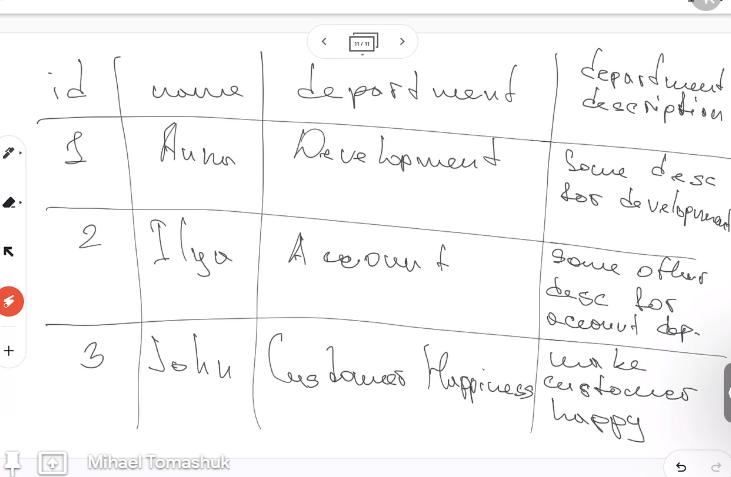 11 / 11
id name department department description
1 Anna Development Some desc for development
2 Ilya Account some other desc for account dep.
3 John Customer Happiness make customer happy
Mihael Tomashuk